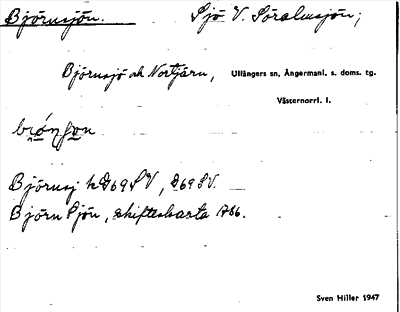 Björnsjön. Sjö V. Söralmsjön;
Björnsjö ock Nortjärn, Ullångers sn, Ångermanl. s. doms. tg.
Västernorrl. l.
Björnsj k D69 SV, D69 SV.
Björn Sjön, skifteskarta 1786.
Sven Hiller 1947